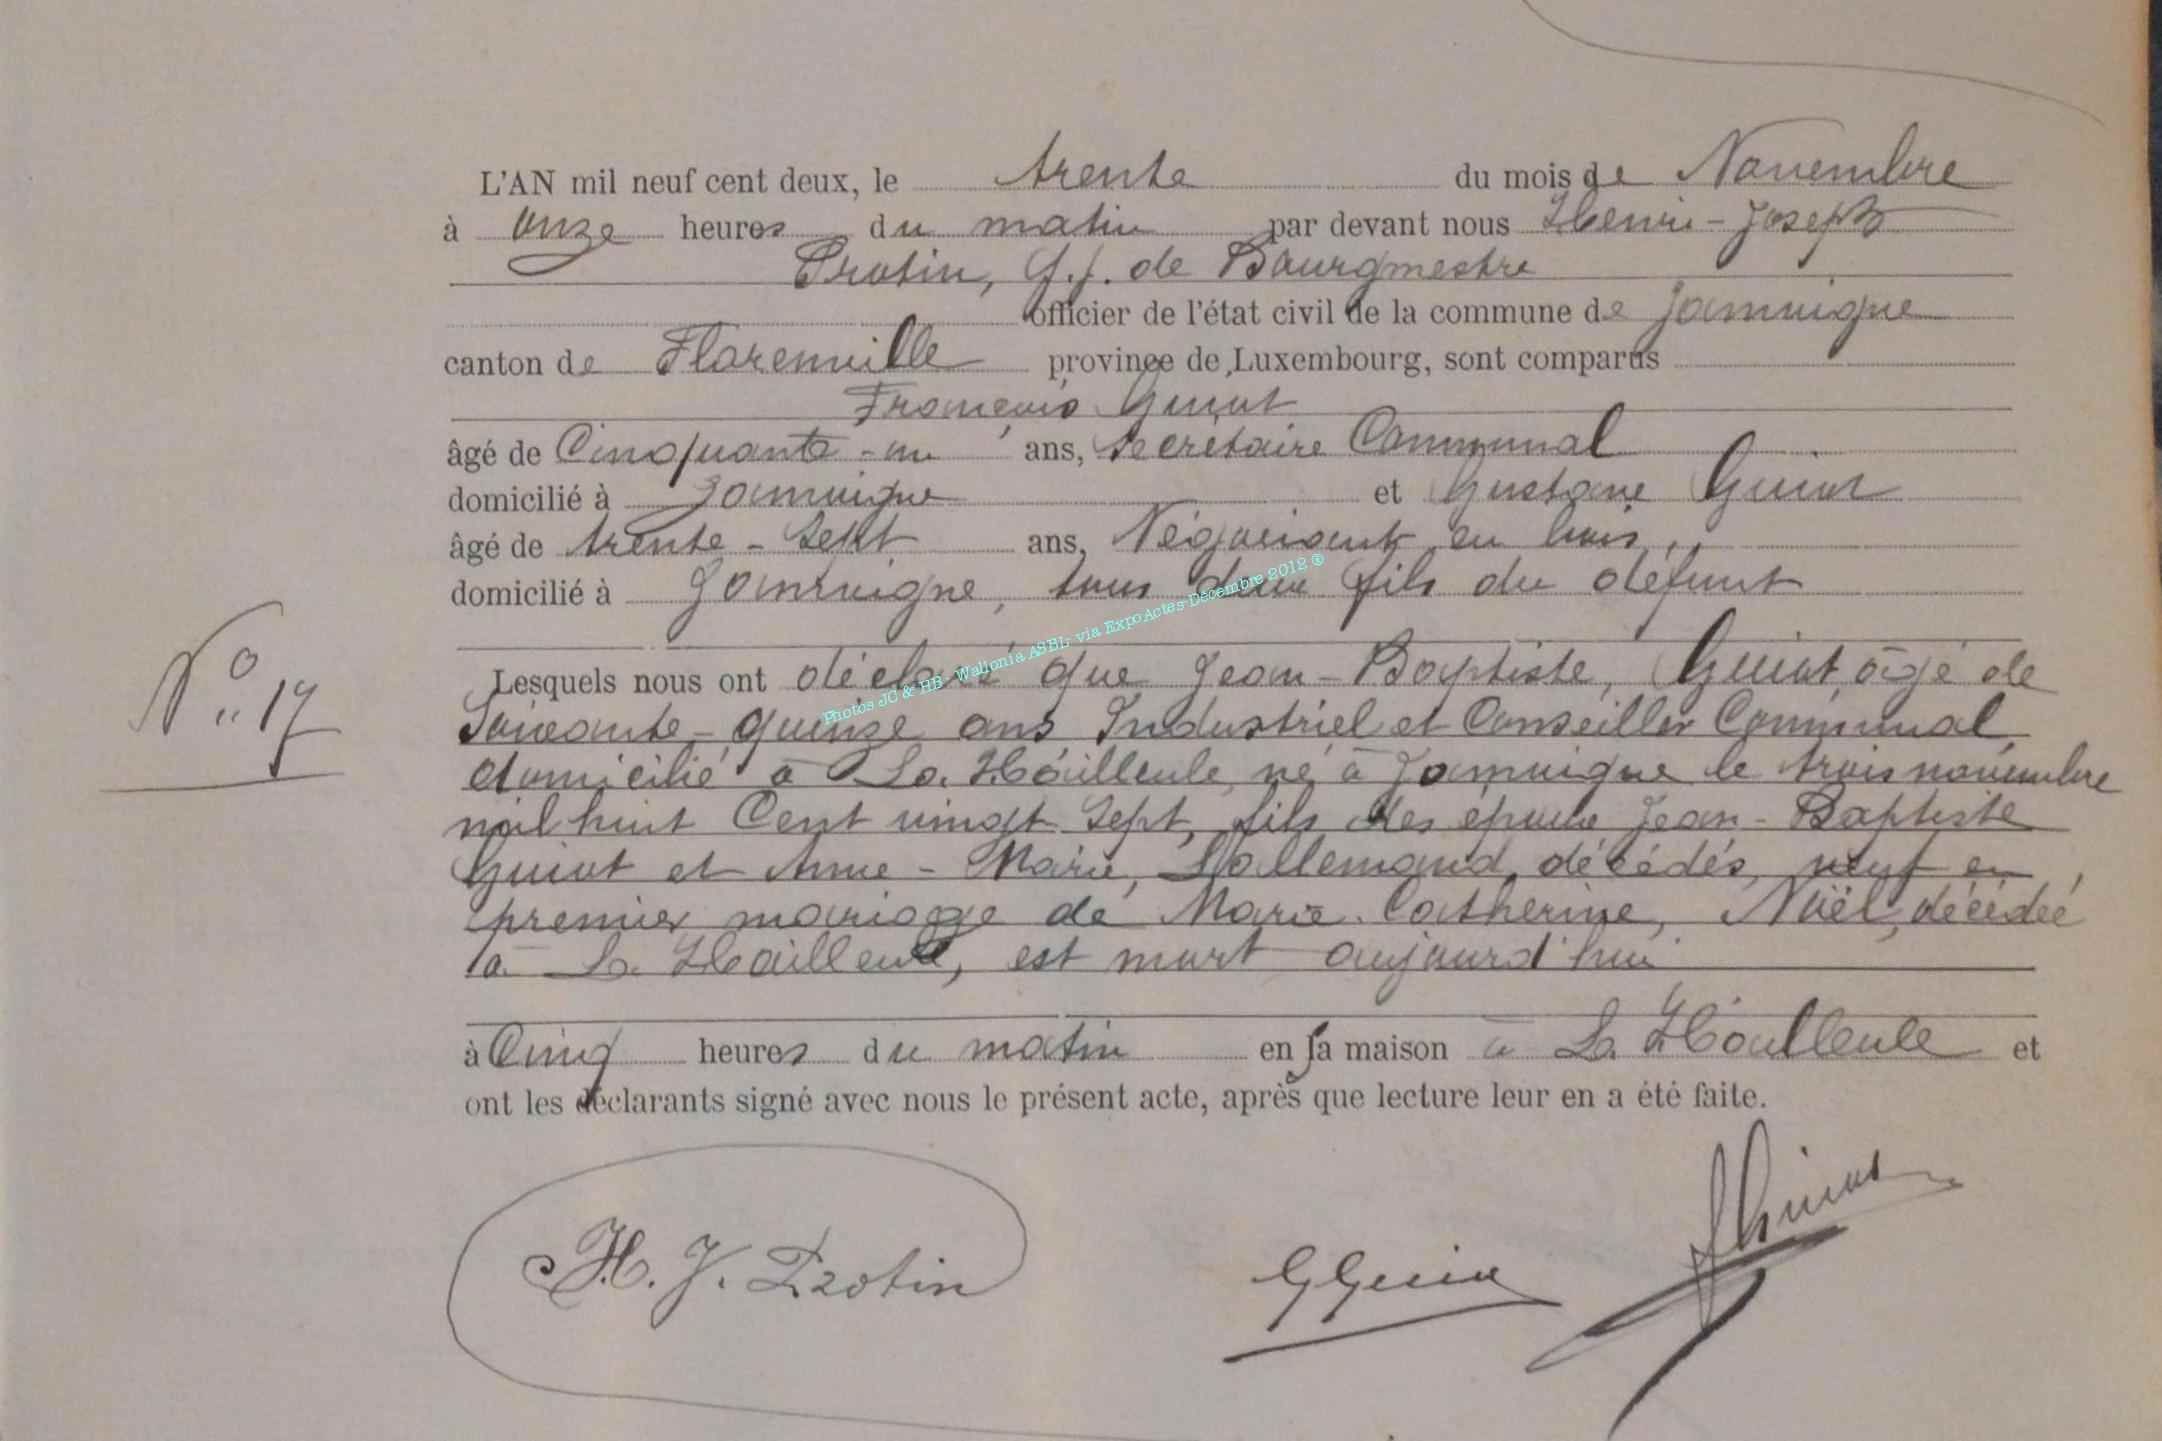 L'AN mil neuf cent deux, le trente du mois de Novembre
à onze heures du matin par devant nous Henri-Joseph
Protin, f.f. de Bourgmestre
officier de l'état civil de la commune de Jamoigne
canton de Florenville province de Luxembourg, sont comparus
François Guiot
âgé de Cinquante-un ans, Secrétaire Communal
domicilié à Jamoigne et Gustave Guiot
âgé de trente-sept ans, Négociant en bois,
domicilié à Jamoigne, tous deux fils du défunt
Photos JC & HB - Wallonia ASBL; via ExpoActes-Décembre 2012 ®
Lesquels nous ont déclaré que Jean-Baptiste, Guiot, âgé de
N° 17
Soixante-quinze ans Industriel et Conseiller Communal,
domicilié à La Hailleule, né à Jamoigne le trois novembre
mil huit Cent vingt Sept, fils des époux Jean-Baptiste
Guiot et Anne-Marie, Lallemand, décédés, veuf en
premier mariage de Marie Catherine, Noël, décédée
à La Hailleule, est mort aujourd'hui
à Cinq heures du matin en sa maison à La Hailleule et
ont les déclarants signé avec nous le présent acte, après que lecture leur en a été faite.
H. J. Protin GGuiot FGuiot